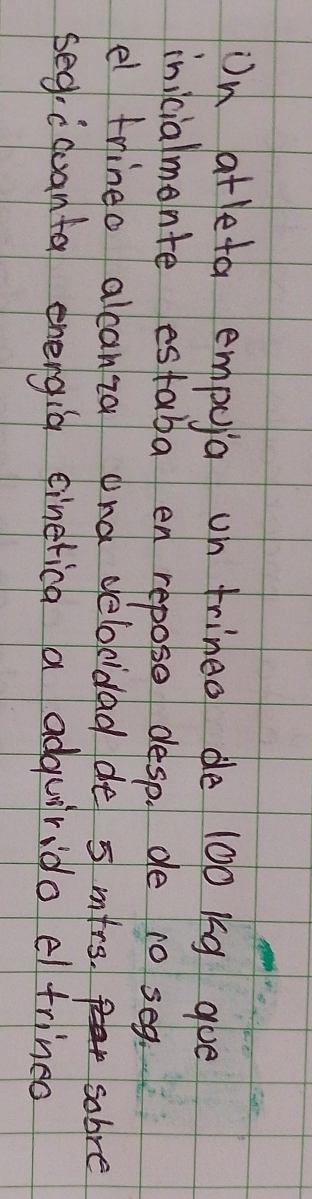 Un atleta empuja un trineo de 100 kg que
inicialmente estaba en reposo desp. de 10 seg.
el trineo alcanza una velocidad de 5 mtrs. sobre
seg. ¿cuanta energia cinetica a adquirido el trineo